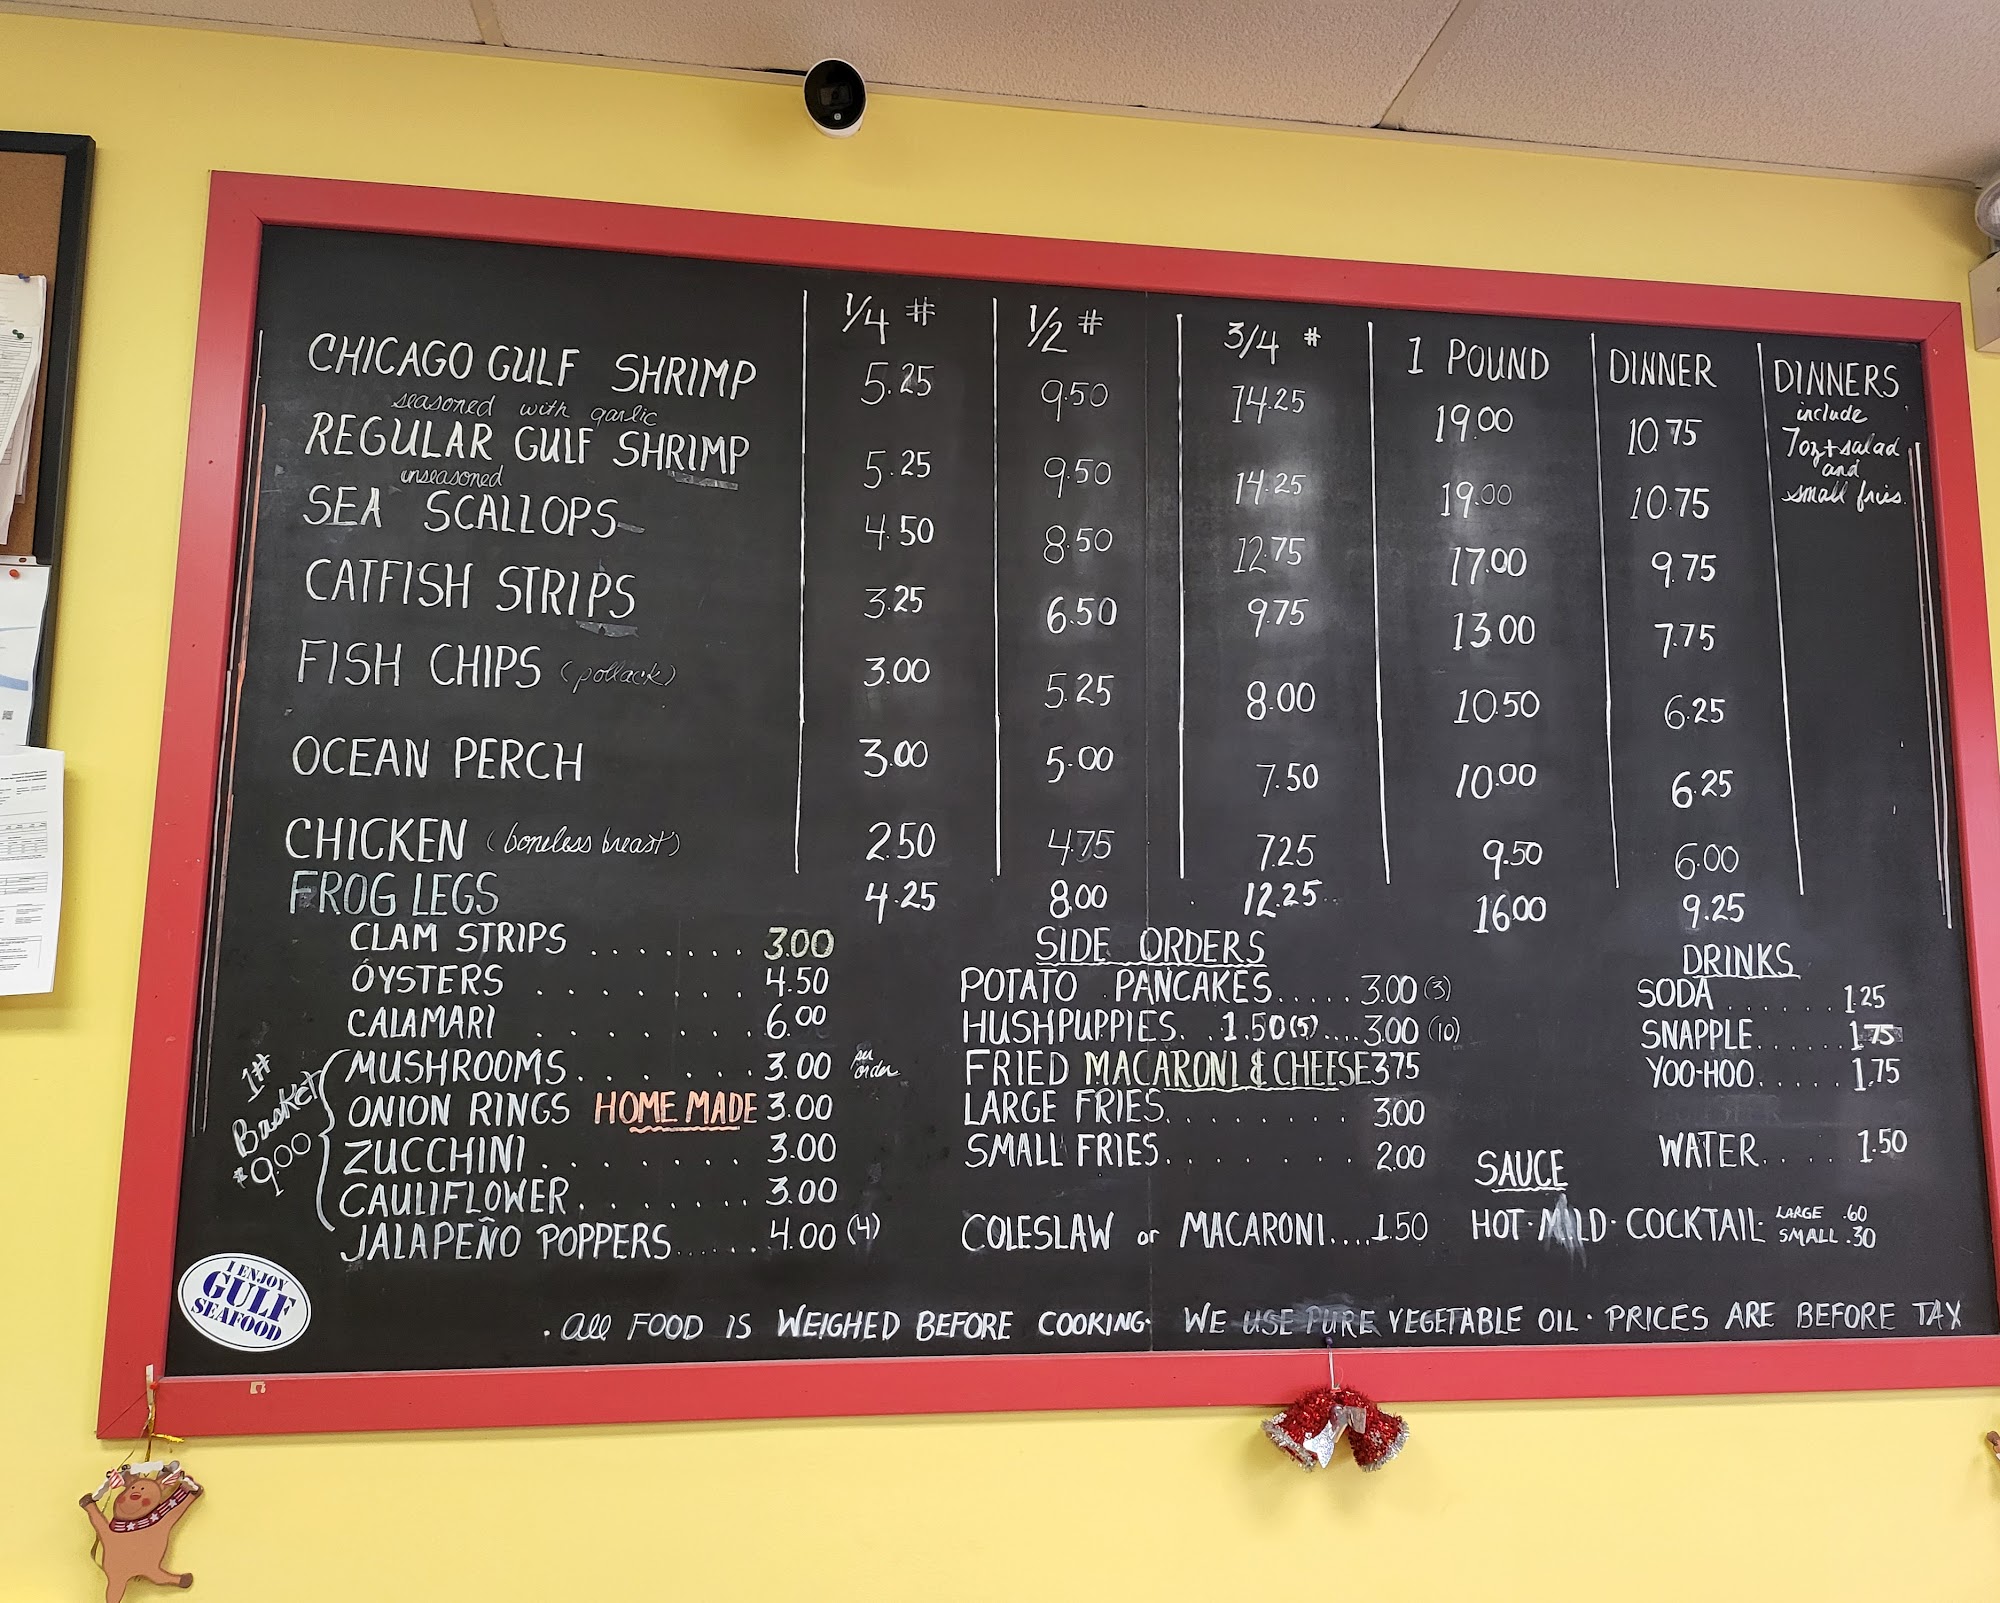 1/4 # 1/2 # 3/4 # 1 POUND DINNER DINNERS
CHICAGO GULF SHRIMP 5.25 9.50 14.25 19.00 10.75
seasoned with garlic
include
7oz + salad
and
small fries.
REGULAR GULF SHRIMP 5.25 9.50 14.25 19.00 10.75
unseasoned
SEA SCALLOPS 4.50 8.50 12.75 17.00 9.75
CATFISH STRIPS 3.25 6.50 9.75 13.00 7.75
FISH CHIPS (pollack) 3.00 5.25 8.00 10.50 6.25
OCEAN PERCH 3.00 5.00 7.50 10.00 6.25
CHICKEN (boneless breast) 2.50 4.75 7.25 9.50 6.00
FROG LEGS 4.25 8.00 12.25 16.00 9.25
CLAM STRIPS ....... 3.00
OYSTERS ....... 4.50
CALAMARI ....... 6.00
1# Basket $9.00
MUSHROOMS....... 3.00 per order
ONION RINGS HOME MADE 3.00
ZUCCHINI....... 3.00
CAULIFLOWER....... 3.00
JALAPEÑO POPPERS...... 4.00 (4)
SIDE ORDERS
POTATO PANCAKES..... 3.00 (3)
HUSHPUPPIES.. 1.50 (5).... 3.00 (10)
FRIED MACARONI & CHEESE 3.75
LARGE FRIES........ 3.00
SMALL FRIES........ 2.00
COLESLAW or MACARONI.... 1.50
DRINKS
SODA ...... 1.25
SNAPPLE...... 1.75
YOO-HOO..... 1.75
WATER..... 1.50
SAUCE
HOT · MILD · COCKTAIL · LARGE .60
SMALL .30
I ENJOY
GULF
SEAFOOD
· All FOOD IS WEIGHED BEFORE COOKING · WE USE PURE VEGETABLE OIL · PRICES ARE BEFORE TAX